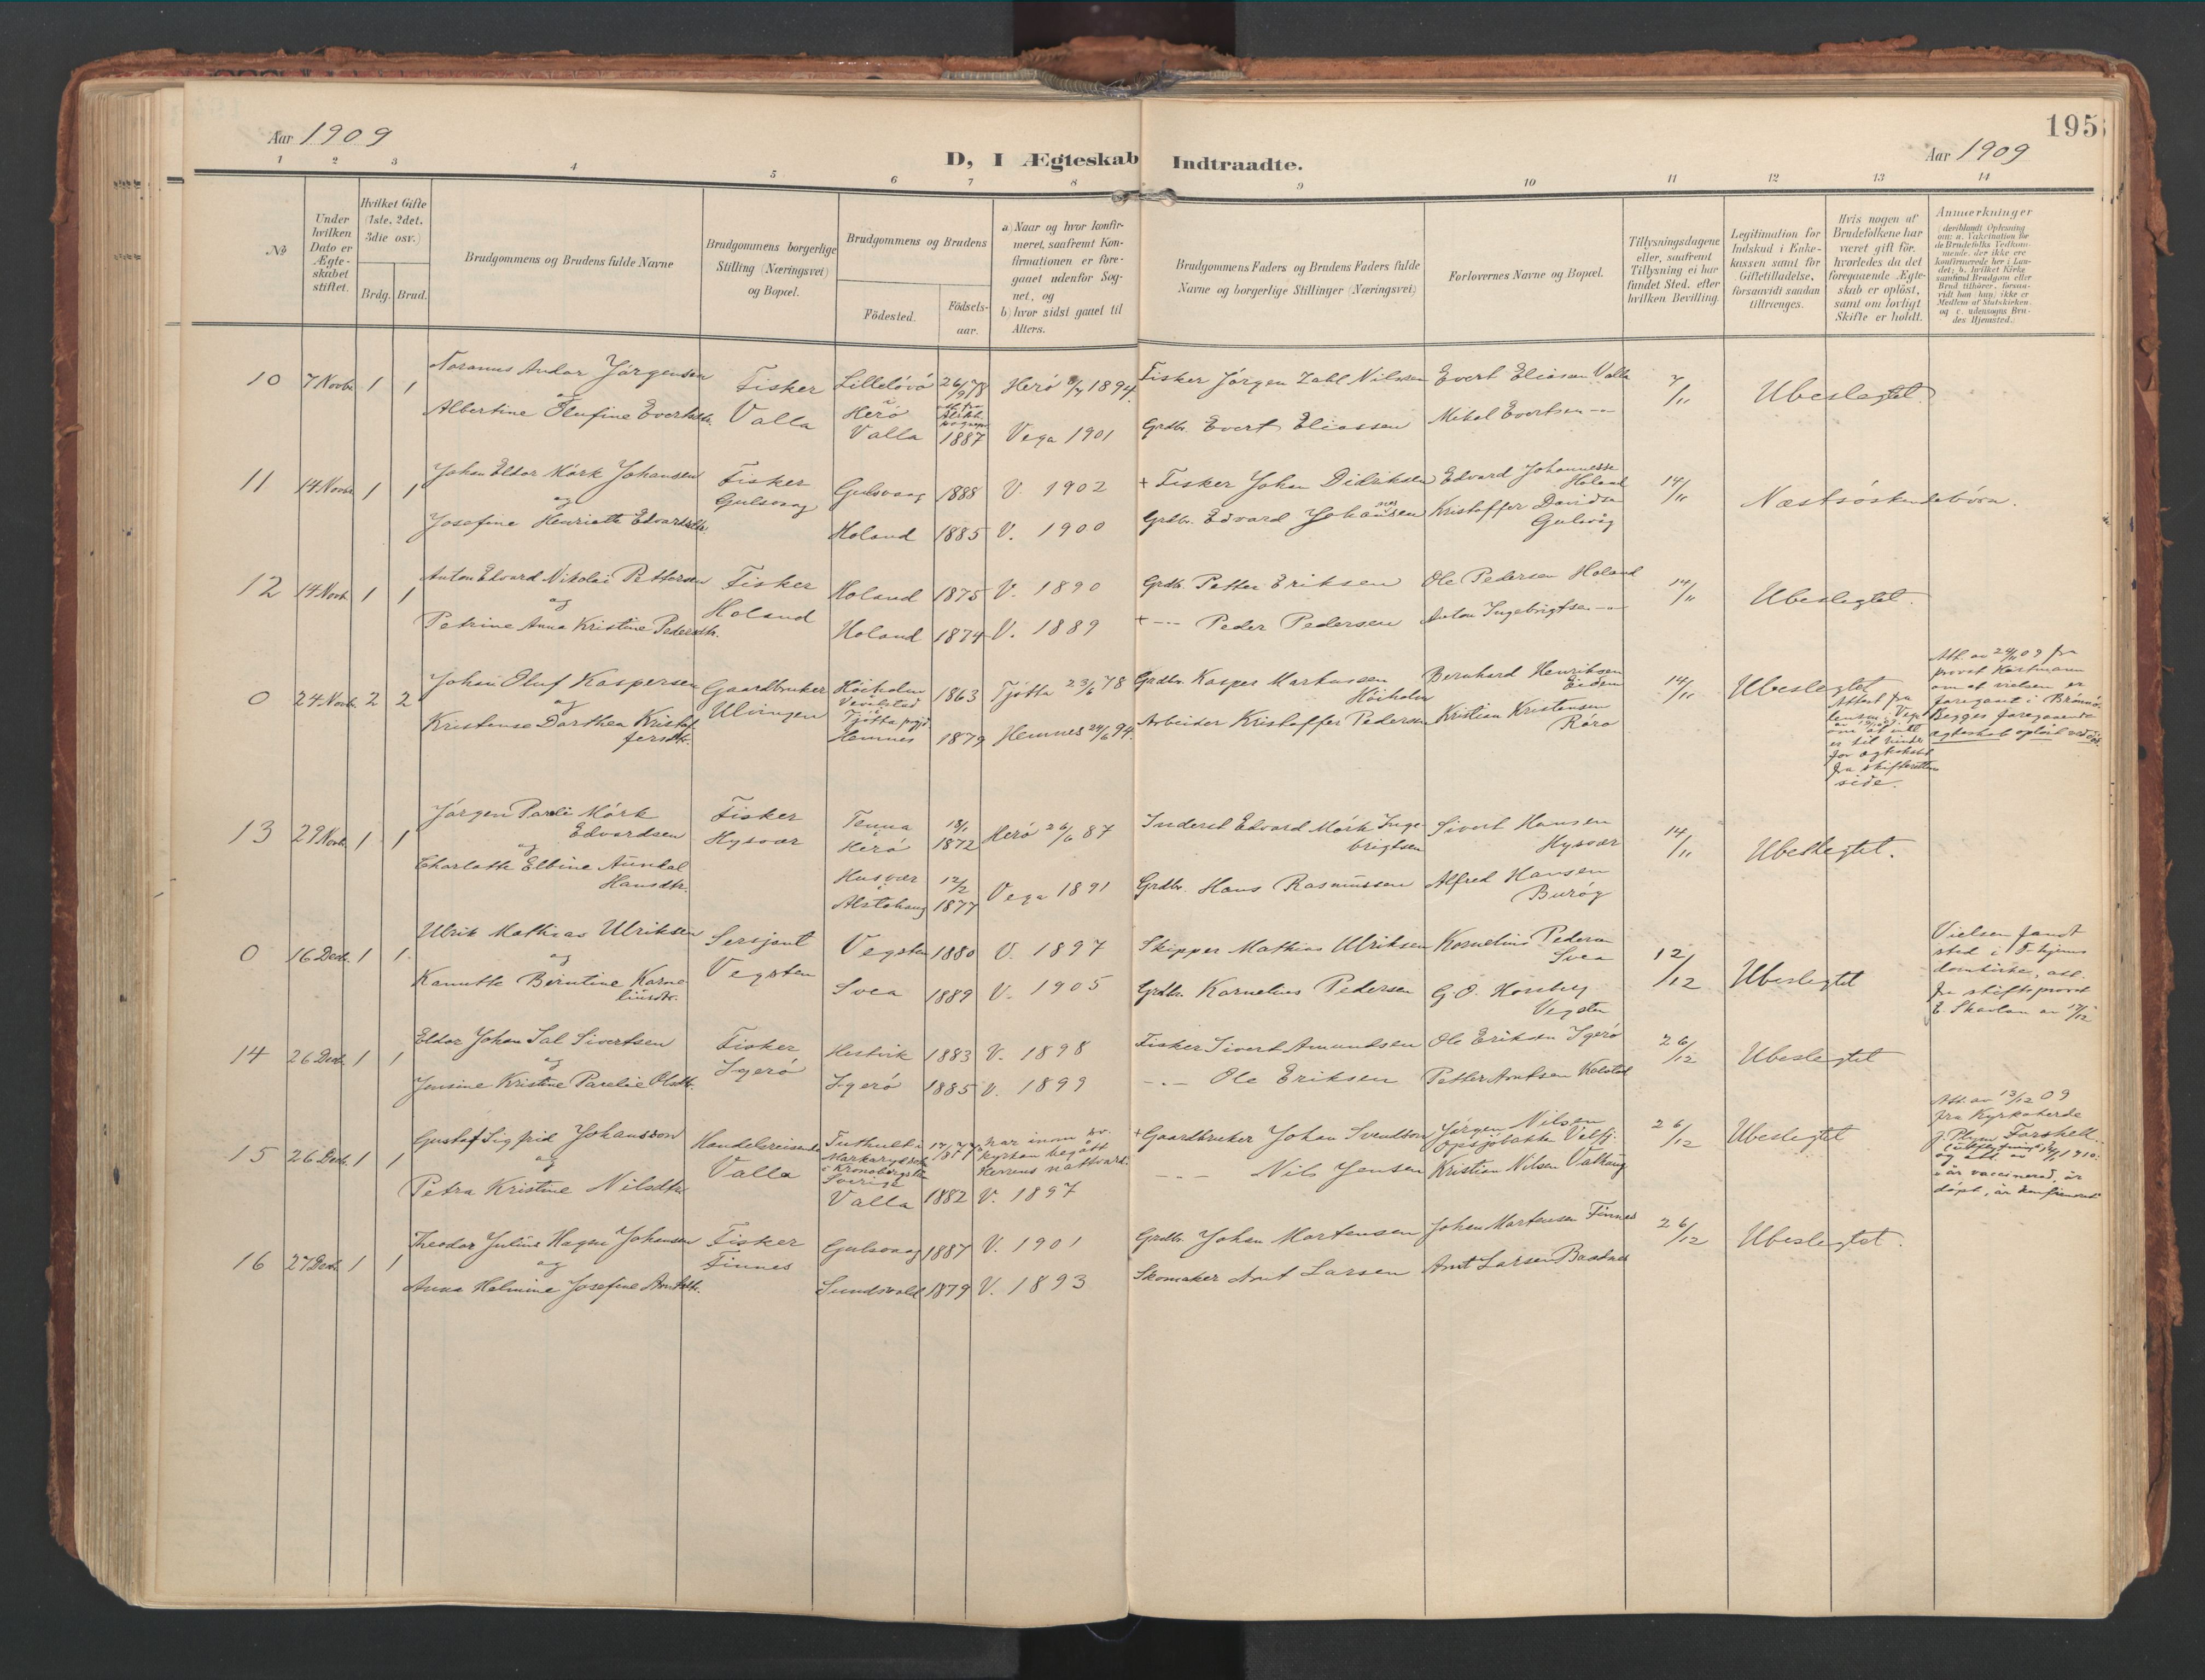 195
Aar 1909
D, I Ægteskab Indtraadte.
Aar 1909
1 2 3 4 5 6 7 8 9 10 11 12 13 14
No
Under hvilken Dato er Ægteskabet stiftet.
Hvilket Gifte (1ste, 2det, 3die osv.)
Brdg. Brud.
Brudgommens og Brudens fulde Navne
Brudgommens borgerlige Stilling (Næringsvei) og Bopæl.
Brudgommens og Brudens
Födested.
Födsels-aar.
a) Naar og hvor konfirmeret, saafremt Konfirmationen er foregaaet udenfor Sognet, og
b) hvor sidst gaaet til Alters.
Brudgommens Faders og Brudens Faders fulde Navne og borgerlige Stillinger (Næringsvei)
Forlovernes Navne og Bopæl.
Tillysningsdagene eller, saafremt Tillysning ei har fundet Sted, efter hvilken Bevilling.
Legitimation for Indskud i Enkekassen samt for Giftetilladelse, forsaavidt saadan tiltrænges.
Hvis nogen af Brudefolkene har været gift för, hvorledes da det foregaaende Ægteskab er oplöst, samt om lovligt Skifte er holdt.
Anmerkninger
(deriblandt Oplysning om: a. Vakcination for de Brudefolks Vedkommende, der ikke ere konfirmerede her i Landet; b. hvilket Kirkesamfund Brudgom eller Brud tilhörer, forsaavidt han (hun) ikke er Medlem af Statskirken, og c. udensogns Brudes Hjemsted.)
10 7 Novbr. 1 1
Andor Jörgensen
og
Albertine Olufine Evertsdtr.
Fisker
Valla
Lillelövö
i
Herö
Valla
26/9 78
1887
Herö 8/7 1894
Vega 1901
Fisker Jörgen Zahl Nilssen
Grdbr. Evert Eliassen
Evert Eliasen Valla
Mikal Evertsen —"—
7/11
Ubeslegtet.
11 14 Novbr 1 1
Johan Eldor Mörk Johansen
og
Josefine Henriette Edvardsdtr.
Fisker
Gulsvaag
Gulsvaag 1888 V. 1902
Holand 1885 V. 1900
+ Fisker Johan Didriksen
Grdbr. Edvard Johansen
Edvard Johannessen
Holand
Kristoffer Davidsen
Gulsvåg
14/11
Næstsöskendebörn.
12 14 Novb. 1 1
Anton Edvard Nikolai Pettersen
og
Petrine Anna Kristine Pedersdtr.
Fisker
Holand
Holand 1875 V. 1890
Holand 1874 V. 1889
Grdb. Petter Eriksen
+ —"— Peder Pedersen
Ole Pedersen Holand
Anton Ingebrigtsen —"—
14/11
Ubeslegtet.
0 24 Novb. 2 2
Johan Oluf Kaspersen
og
Kristense Dorthea Kristoffersdtr.
Gaardbruker
Ulvingen
Höiholm
Vevelstad
i
Tjötta prgjd
Hemnes
1863
1879
Tjötta 23/6 78
Hemnes 24/6 94.
Grdbr. Kasper Markussen
Höiholm
Arbeider Kristoffer Pedersen
Bernhard Henriksen
Eidem
Kristian Kristensen
Rörö
14/11
Ubeslegtet
Attest fra
er til hinder
for ægteskabet
fra skifterettens
side.
Att. av 24/11 09 fra
provst Hartmann
om at vielsen er
foregaaet i Brönnö.
Begges foregaaende
ægteskab oplöst ved död.
13 29 Novb. 1 1
Jörgen Mörk
Edvardsen
og
Charlotte Elbine Aündal
Hansdtr.
Fisker
Hysvær
Tenna
Herö
Husvær
Alstahaug
18/1 1872
12/2 1877
Herö 26/6 87
Vega 1891
Inderst Edvard Mörk Ingebrigtsen
Grdbr. Hans Rasmussen
Sivert Hansen
Hysvær
Alfred Hansen
Buröy
14/11
Ubeslegtet.
0 16 Decb. 1 1
Ulrik Mathias Ulriksen
og
Kanutte Berntine Korneliusdtr.
Sersjant
Vegsten
Vegsten 1880 V. 1897
Svea 1889 V. 1905
Skipper Mathias Ulriksen
Grdbr. Kornelius Pedersen
Kornelius Pedersen
Svea
G. O. Hornby
Vegsten
12/12
Ubeslegtet
Vielsen fandt
sted i T-hjems
domkirke, att.
fra stiftsprovst
E. Skavlan av 17/12
14 26 Decb. 1 1
Eldor Johan Sal Sivertsen
og
Jensine Kristine Parelie Olsdtr.
Fisker
Igerö
Hestvik 1883 V. 1898
Igerö 1885 V. 1899
Fisker Sivert Amundsen
—"— Ole Eriksen
Ole Eriksen Igerö
Petter Arntsen Kolstad
26/12
Ubeslegtet
15 26 Decb. 1 1
Gustaf Sigfrid Johansson
og
Petra Kristine Nilsdtr.
Handelsreisende
Valla
Tuthult i
Markaryds
i Kronobergs län
Sverige
Valla 1882 V. 1897
har inom sv.
kyrkan begått
Herrens nattvard.
+ Gaardbruker Johan Svendson
—"— Nils Jensen
Jörgen Nilsen
Kristian Nilsen Valhaug
26/12
Ubeslegtet
Att. av 13/12 09
fra Kyrkoherde
är vaccinerad, är
döpt, är konfirmerat
16 27 Decb. 1 1
Theodor Julius Hagen Johansen
og
Anna Helmine Josefine Arntsdtr.
Fisker
Finnes
Gulsvaag 1887 V. 1901
Sundsvold 1879 V. 1893
Grdbr. Johan Mortensen
Skomaker Arnt Larsen
Johan Mortensen Finnes
Arnt Larsen Baadnes
26/12
Ubeslegtet.